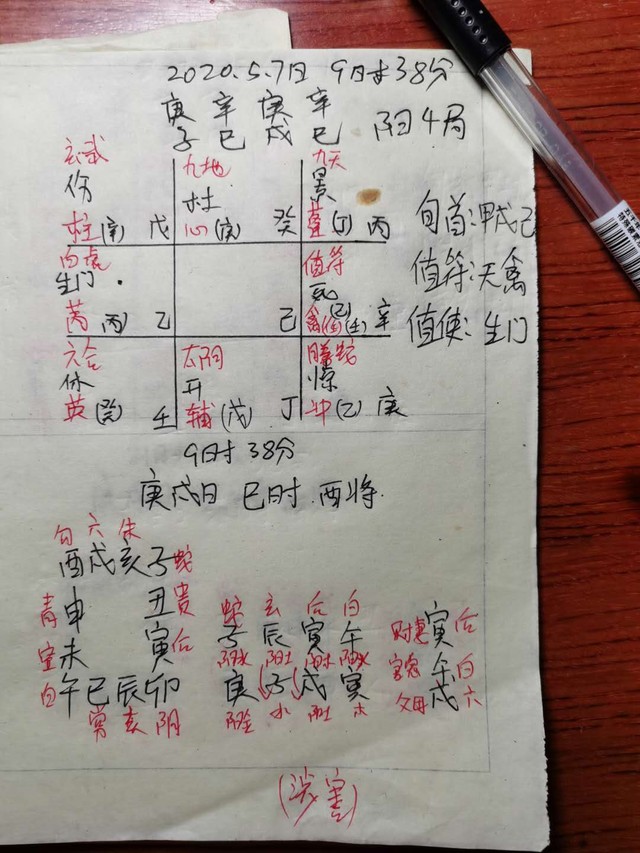 2020.5.7日 9时38分
庚 辛 庚 辛
子 巳 戌 巳 阳4局
玄武 九地 九天
伤 杜 景
柱(辛) 戊 心(庚) 癸 蓬(丁) 丙
旬首:甲戌己
白虎 值符
生门 死
值符:天禽
芮(丙) 乙 己 禽(己)任(壬) 辛
值使:生门
六合 太阴 腾蛇
休 开 惊
英(癸) 壬 辅(戊) 丁 冲(乙) 庚
9时38分
庚戌日 巳时 酉将
勾 六 朱
酉戌亥子 蛇
青 申 丑 贵
未 寅 后
白 午巳辰卯
常 玄 阴
蛇 玄 后 白
子 辰 寅 午
阳水 阳土 阳木 阳火
庚 子 戌 寅
阳金 水 阳土 木
财妻 寅 后
官鬼 午 白
父母 戌 六
(涉害)